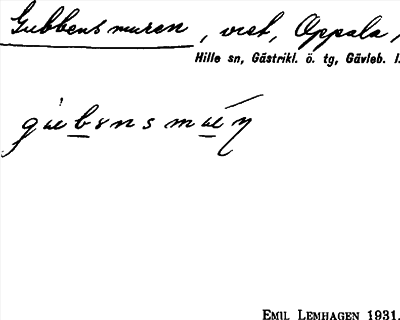 Gubbensmuren, vret, Oppala,
Hille sn, Gästrikl. ö. tg, Gävleb. l.
EMIL LEMHAGEN 1931.